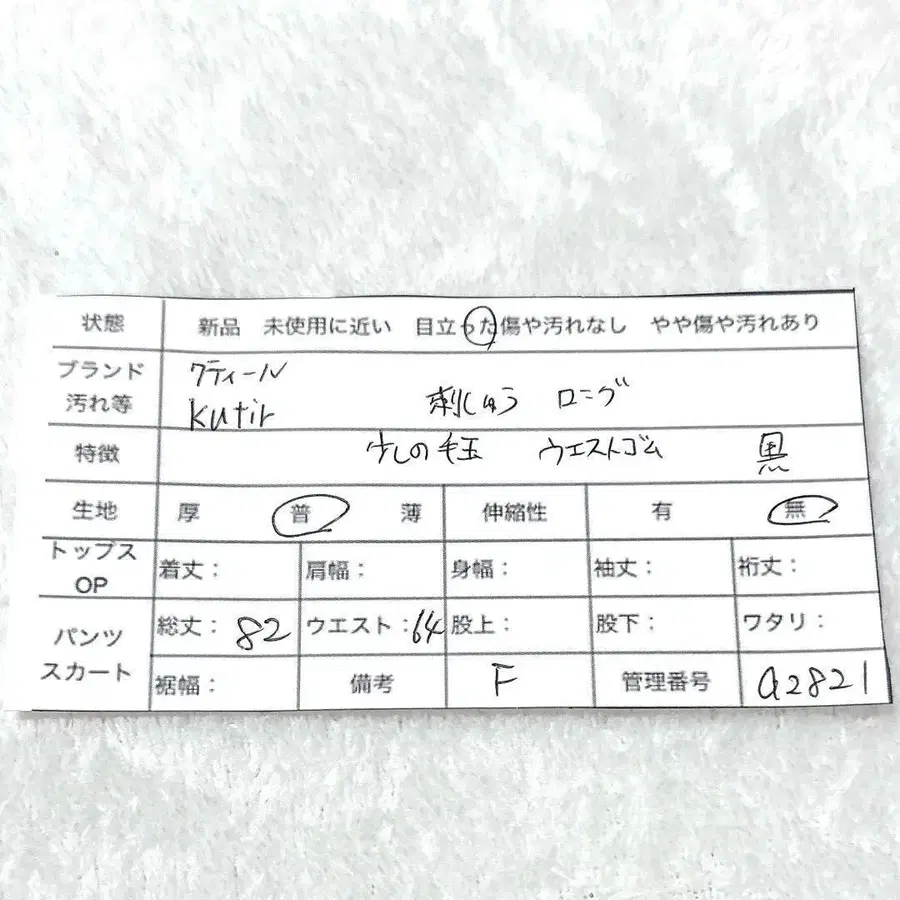 状態 新品 未使用に近い 目立った傷や汚れなし やや傷や汚れあり
ブランド クティール
汚れ等 kutir 刺しゅう ロング
特徴 少しの毛玉 ウエストゴム 黒
生地 厚 普 薄 伸縮性 有 無
トップス OP 着丈： 肩幅： 身幅： 袖丈： 裄丈：
パンツ スカート 総丈：82 ウエスト：64 股上： 股下： ワタリ：
裾幅： 備考 F 管理番号 a2821